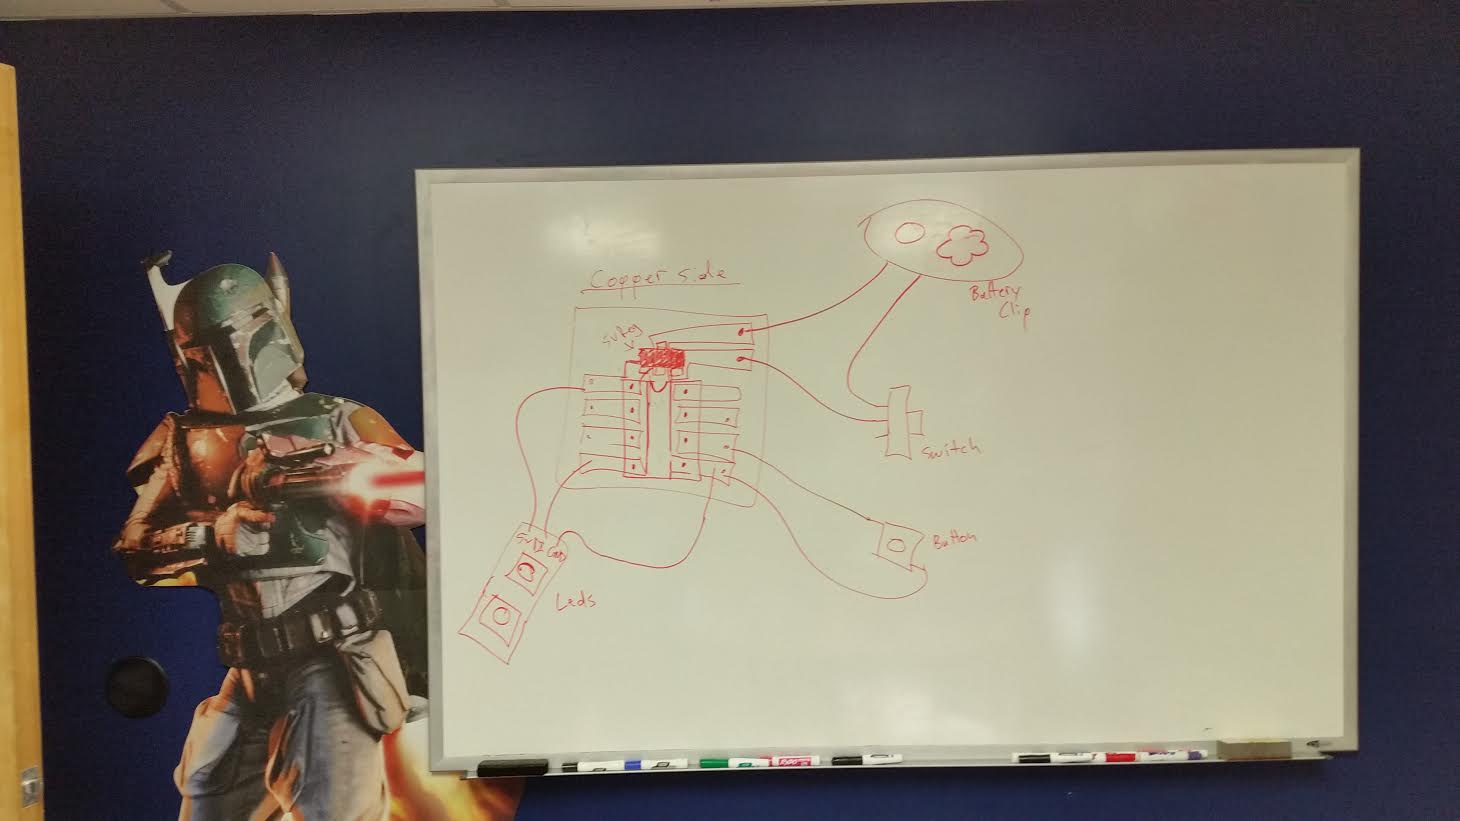 Copper side
5v Reg
Battery
Clip
Switch
Button
5v DI GND
Leds
EXPO